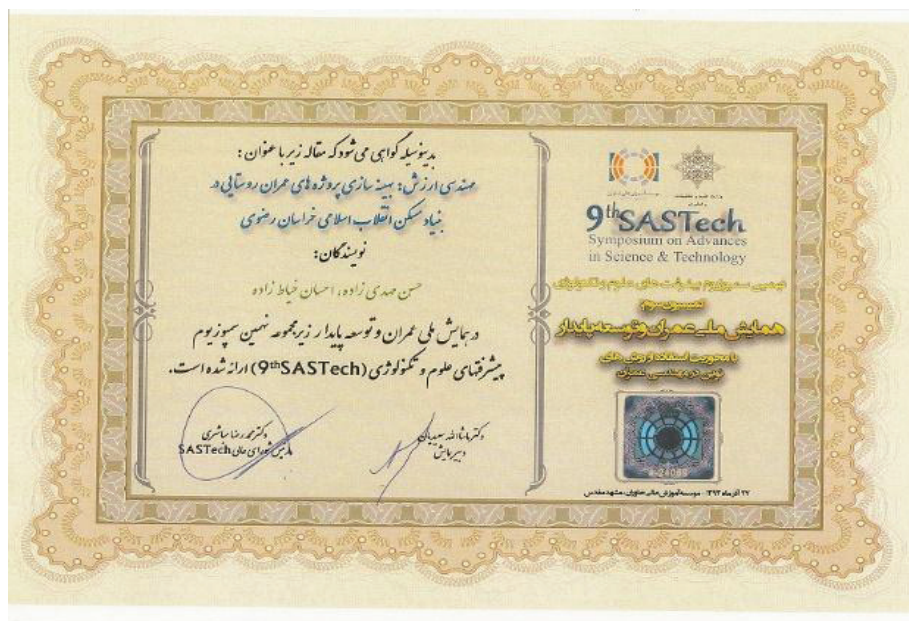 بدینوسیله گواهی می شود که مقاله زیر با عنوان :
مهندسی ارزش؛ بهینه سازی پروژه های عمران روستایی در
بنیاد مسکن انقلاب اسلامی خراسان رضوی
نویسندگان:
حسن مهدی زاده، احسان خیاط زاده
در همایش ملی عمران و توسعه پایدار زیرمجموعه نهمین سمپوزیوم
پیشرفتهای علوم و تکنولوژی (9thSASTech) ارائه شده است.
دکتر ماشاالله سعیدیان
دبیر همایش
دکتر محمدرضا مباشری
شورای عالی SASTech
9th SASTech
Symposium on Advances
in Science & Technology
نهمین سمپوزیوم پیشرفت های علوم و تکنولوژی
کمیسیون سوم:
همایش ملی عمران و توسعه پایدار
با محوریت استفاده از روش های
نوین در مهندسی عمران
۲۷ آذرماه ۱۳۹۳ - موسسه آموزش عالی خاوران، مشهد مقدس